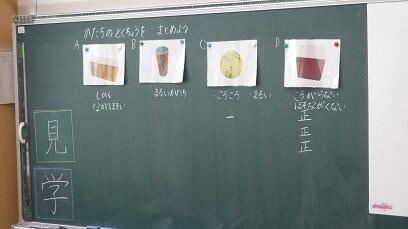 かたちの とくちょうを まとめよう
A
B
C
D
しかく
ながしかくい
まるいかたち
・ころころ ・まるい
一
・ころがらない
・ほそながくない
正
正
正
見
学